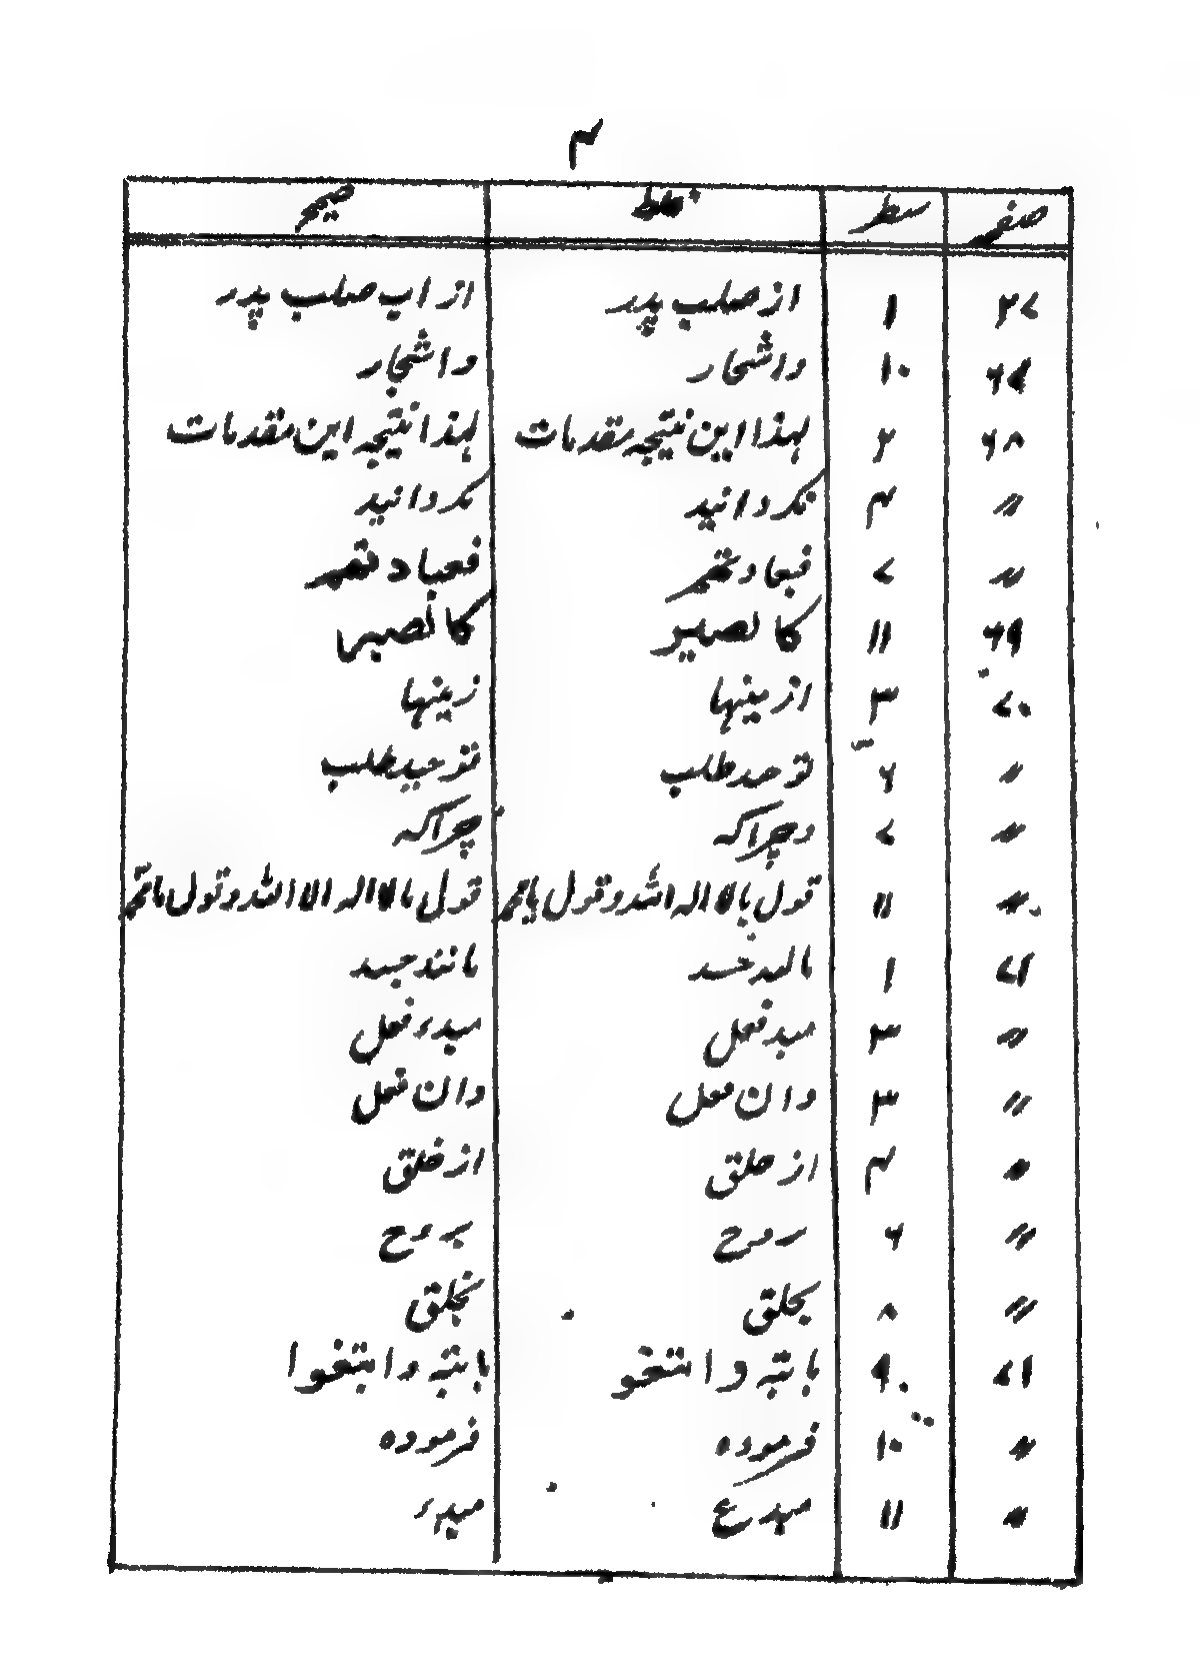 ۴
صفحه سطر غلط صحیح
۲۷ ۱ از صلب پدر از اب صلب پدر
۶۴ ۱۰ واشحار واشجار
۶۸ ۲ لهذا این نتیجه مقدمات لهذا نتیجه این مقدمات
〃 ۴ نکردانید کردانید
〃 ۷ فبعاد
۶۹ ۱۱ کا لصیر کا لصبر
۷۰ ۳ ازینها زینها
〃 ۶ توحد طلب توحید طلب
〃 ۷ وچراکه چراکه
〃 ۱۱ قول بالا اله الله وقول قول بالا اله الا الله وقول
۷۱ ۱ مانند
〃 ۳ مبد فعل مبدء فعل
〃 ۳ وان معل وان فعل
〃 ۴ از حلق از خلق
〃 ۶ روح بروح
〃 ۸ بحلق بخلق
۷۱ ۹ بالله وابتغوا
〃 ۱۰ فرموده فرموده
〃 ۱۱ مبدء